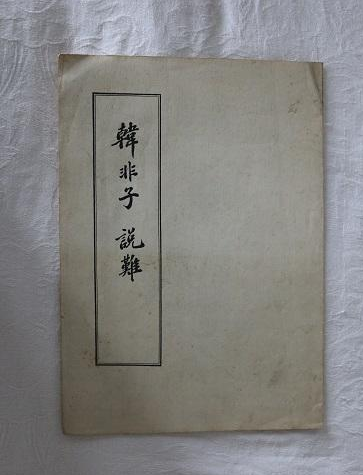 韓非子 説難